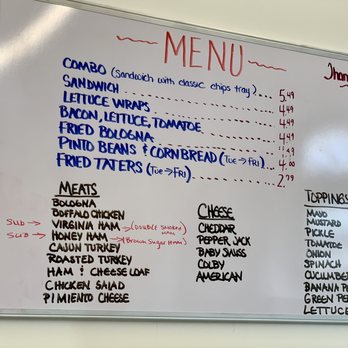 MENU
Than
COMBO (Sandwich with classic chips tray) ... 5.49
SANDWICH ... 4.49
LETTUCE WRAPS ... 4.49
BACON, LETTUCE, TOMATOE ... 4.49
FRIED BOLOGNA ... 4.49
PINTO BEANS & CORNBREAD (TUE → FRI) ... 4.00
FRIED TATERS (TUE → FRI) ... 2.79
MEATS
BOLOGNA
BUFFALO CHICKEN
SUB → VIRGINIA HAM → (DOUBLE SMOKED HAM)
SUB → HONEY HAM → (Brown Sugar Ham)
CAJUN TURKEY
ROASTED TURKEY
HAM & CHEESE LOAF
CHICKEN SALAD
PIMIENTO CHEESE
CHEESE
CHEDDAR
PEPPER JACK
BABY SWISS
COLBY
AMERICAN
TOPPINGS
MAYO
MUSTARD
PICKLE
TOMATOE
ONION
SPINACH
CUCUMBER
BANANA P
GREEN PE
LETTUCE